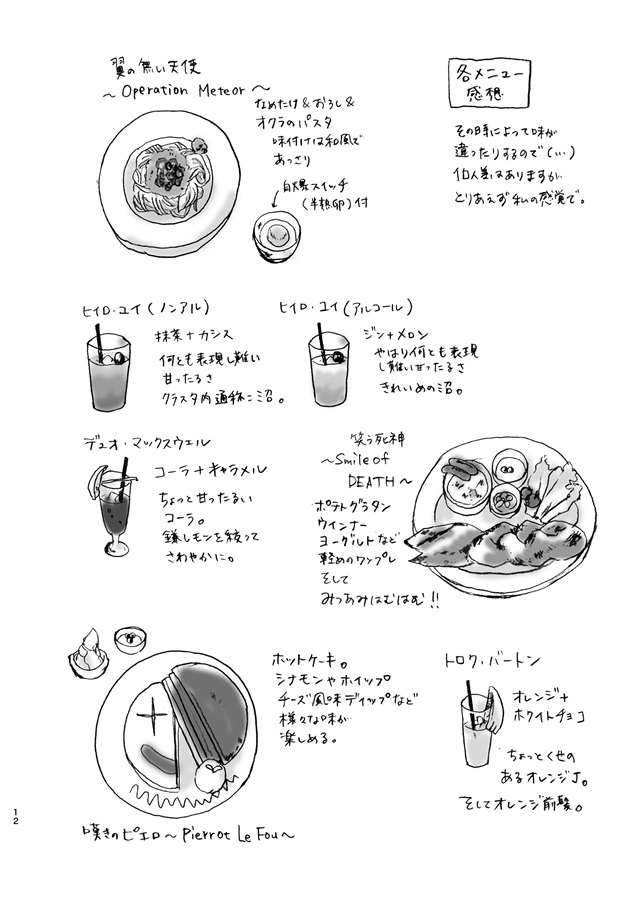 各メニュー
感想
その時によって味が
違ったりするので(…)
個人差はありますが
とりあえず私の感覚で。
翼の無い天使
~Operation Meteor~
なめたけ&おろし&
オクラのパスタ
味付けは和風で
あっさり
自爆スイッチ
(半熟卵)付
ヒイロ・ユイ(ノンアル)
抹茶+カシス
何とも表現し難い
甘ったるさ
クラスタ内通称:沼。
ヒイロ・ユイ(アルコール)
ジン+メロン
やはり何とも表現
し難い甘ったるさ
きれいめの沼。
デュオ・マックスウェル
コーラ+キャラメル
ちょっと甘ったるい
コーラ。
鎌レモンを絞って
さわやかに。
笑う死神
~Smile of
DEATH~
ポテトグラタン
ウインナー
ヨーグルトなど
軽めのワンプレ
そして
みつあみはむはむ!!
ホットケーキ。
シナモンやホイップ
チーズ風味ディップなど
様々な味が
楽しめる。
嘆きのピエロ~Pierrot Le Fou~
トロワ・バートン
オレンジ+
ホワイトチョコ
ちょっとくせの
あるオレンジJ。
そしてオレンジ前髪。
12